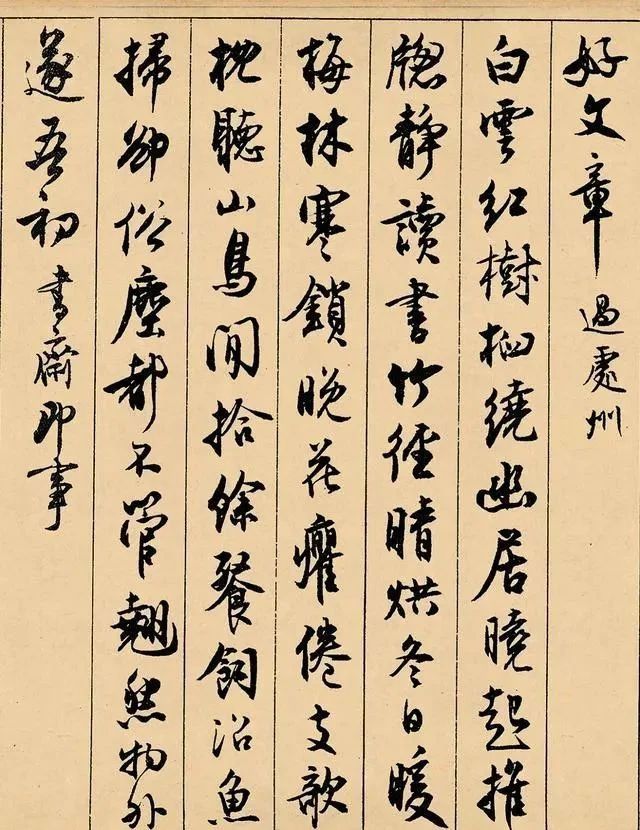 好文章 過處州
白雲紅樹相繞幽居曉起推
牕靜讀書竹徑晴烘冬日暖
梅林寒鎖晚花癯倦支欹
枕聽山鳥閒拾餘餐飼沼魚
掃卻俗塵都不管翹然物外
遂吾初 書齋即事